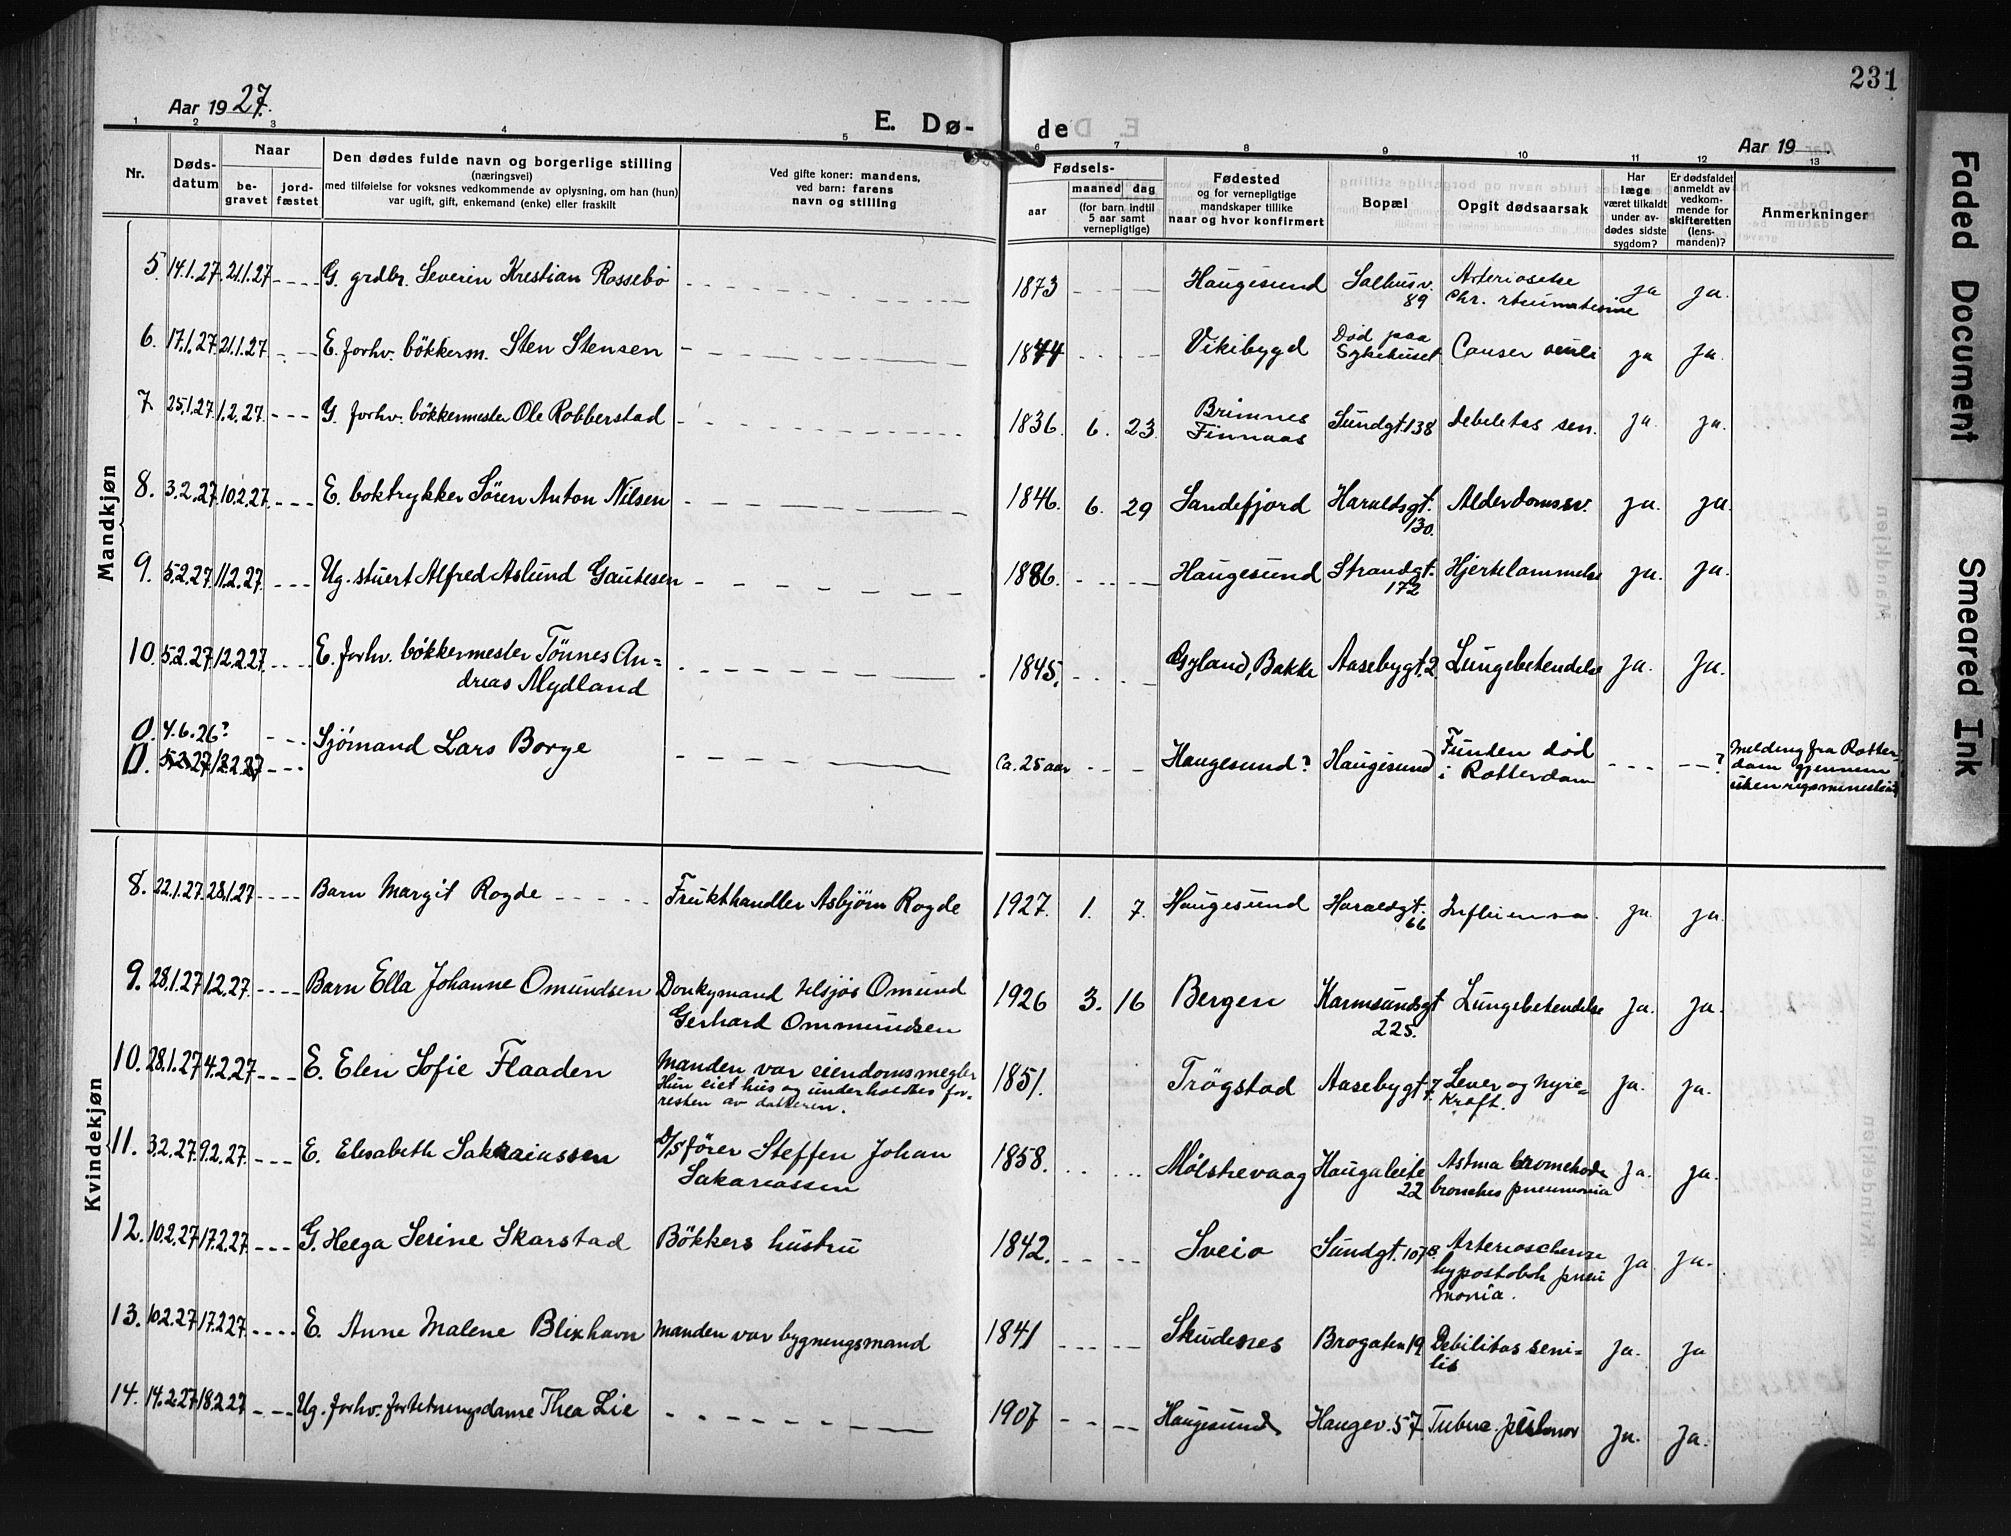 231
Aar 1927.
E. Dø-
de
Aar 19
1 2 3 4 5 6 7 8 9 10 11 12 13
Nr.
Døds-
datum
Naar
be-
gravet
jord-
fæstet
Den dødes fulde navn og borgerlige stilling
(næringsvei)
med tilføielse for voksnes vedkommende av oplysning, om han (hun)
var ugift, gift, enkemand (enke) eller fraskilt
Ved gifte koner: mandens,
ved barn: farens
navn og stilling
Fødsels-
aar
maaned
dag
(for barn indtil
5 aar samt
vernepligtige)
Fødested
og for vernepligtige
mandskaper tillike
naar og hvor konfirmert
Bopæl
Opgit dødsaarsak
Har
læge
været tilkaldt
under av-
dødes sidste
sygdom?
Er dødsfaldet
anmeldt av
vedkom-
mende for
skifteretten
(lens-
manden)?
Anmerkninger
Mandkjøn
5. 14.1.27. 21.1.27 G. grdbr. Severin Krestian Rossebø 1873 Haugesund Salhusv. 89 Chr. ja ja.
6. 17.1.27 21.1.27 E. forhv. bökkerm. Sten Stensen 1844 Vikibygd Død paa Sykehuset ja ja.
7. 25.1.27. 1.2.27. G. forhv. bökkermester Ole Robberstad 1836. 6. 23. Brimnes Finnaas Sundgt. 138 Debeletas sen. ja. ja.
8. 3.2.27. 10.2.27. E. boktrykker Sören Anton Nilsen 1846. 6. 29 Sandefjord Haraldsgt. 130. Alderdomssv. ja. ja.
9. 5.2.27. 11.2.27. Ug. stuert Alfred Aslund Gautesen 1886. Haugesund Strandgt. 172 Hjertelammelse ja. ja.
10. 5.2.27. 12.2.27. E. forhv. bökkermester Tönnes An=
dreas Mydland 1845. Gyland, Bakke Aasebygt. 2 Lungebetendelse ja. ja.
0. 4.6.26? Sjömand Lars Borge Ca. 25 aar Haugesund? Haugesund Funden död
i Rotterdam ? Melding fra Rotter-
dam gjennem
0. 5.2.27 12.2.27
Kvindekjøn
8. 22.1.27. 28.1.27 Barn Margit Rogde Frukthandler Asbjörn Rogde 1927. 1. 7. Haugesund Haraldsgt. 66 Influensa ja. ja.
9. 28.1.27 1.2.27. Barn Ella Johanne Omundsen Donkymand tilsjøs Omund
Gerhard Ommundsen 1926 3. 16 Bergen Karmsundsgt 225. Lungebetendelse ja. ja.
10. 28.1.27 4.2.27 E. Elen Sofie Flaaden Manden var eiendomsmegler
Hun eiet hus og underholdtes for-
resten av datteren. 1851. Trögstad Aasebygt. 7. Lever og nyre-
kræft. ja. ja.
11. 3.2.27. 9.2.27. E. Elesabeth Sakraiassen D/S förer Steffen Johan
Sakariassen 1858. Mølstrevaag Haugaleite 22 Astma
bronches pneumonia ja. ja.
12. 10.2.27 17.2.27. G. Helga Serine Skarstad Bökkers hustru 1842. Sveio Sundgt. 107
pneu
monia. ja ja.
13. 10.2.27 17.2.27 E. Anne Malene Blixhavn Manden var bygningsmand 1841 Skudenes Brogaten 19 Debilitas seni-
lis ja. ja
14. 14.2.27 18.2.27 Ug. forhv. forretningsdame Thea Lie 1907 Haugesund Haugev. 57 ja. ja.
Faded Document
Smeared Ink